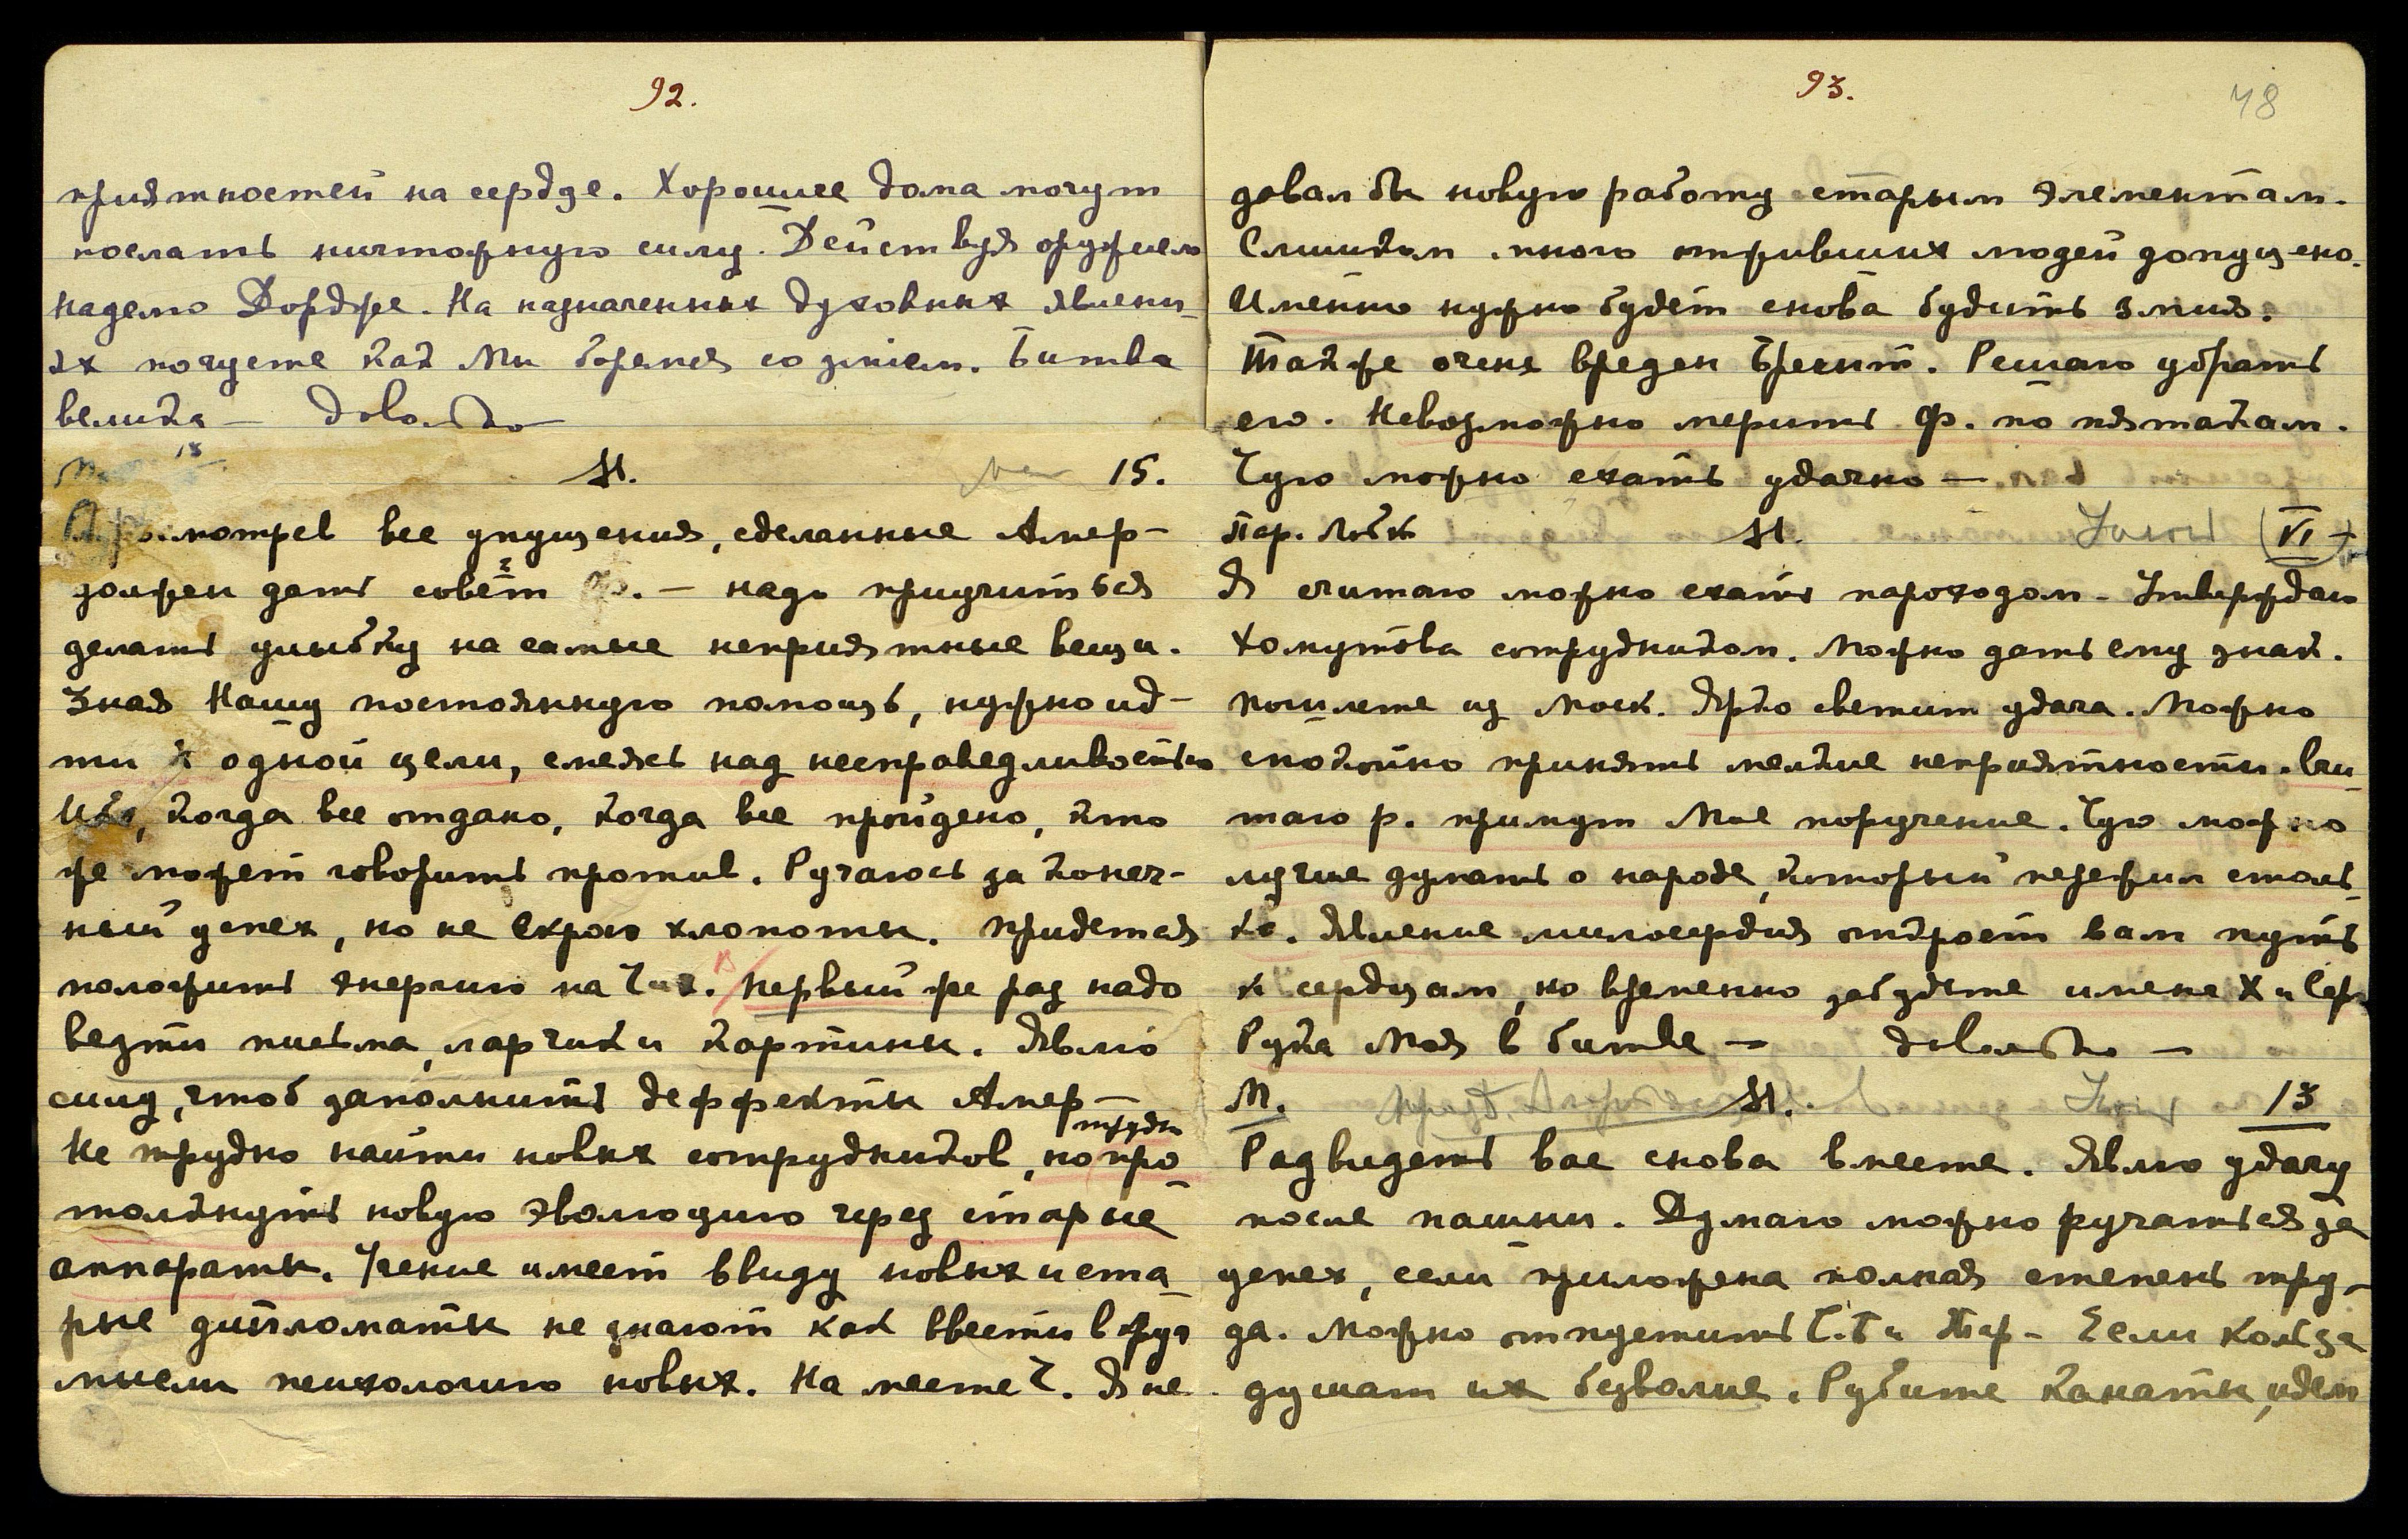 92.
приятностей на сердце. Хорошие дома могут
послать ничтожную силу. Действуя оружием
надемо Дордже. На назначенных духовных явлени-
ях почуете как Мы боремся со змием. Битва
велика — довольно —
М. 15.
Просмотрев все упущения, сделанные Амер-
должен дать совет Ф. — надо приучиться
делать улыбку на самые неприятные вещи.
Зная Нашу постоянную помощь, нужно ид-
ти к одной цели, смеясь над несправедливостью
Ибо, когда все отдано, когда все пройдено, кто
же может говорить против. Ручаюсь за конеч-
ный успех, но не скрою хлопоты. Придется
положить энергию на Чич. Первый же раз надо
везти письма, ларчик и картины. Являю
силу, чтоб заполнить деффекты Амер —
трудно
Не трудно найти новых сотрудников, но про-
толкнуть новую эволюцию через старые
аппараты. Учение имеет ввиду новых и ста-
рые дипломаты не знают как ввести в круг
мысли психологию новых. На месте Ч. Я не
93.
48
давал бы новую работу старым элементам.
Слишком много отживших людей допущено.
Именно нужно будет снова будить змия.
Также очень вреден Брехит. Решаю убрать
его. Невозможно мерить Ф. по пятакам.
Чую можно ехать удачно —
М. Июнь (VI
Я считаю можно ехать пароходом. Утверждаю
Хомутова сотрудником. Можно дать ему знак.
пошлете из Моск. Ярко светит удача. Можно
спокойно принять мелкие неприятности. Счи-
таю р. примут Мое поручение. Чую можно
лучше думать о народе, который пережил столь-
ко. Явление милосердия откроет вам путь
к сердцам, но временно забудьте имена Х и Сер.
Рука Моя в битве — довольно —
М. М. Июнь 13
Рад видеть вас снова вместе. Являю удачу
после пашни. Думаю можно ручаться за
успех, если приложена полная степень тру-
да. Можно отпустить С. Б и Тар — Если кольца
душат их безволие. Рубите канаты, идем